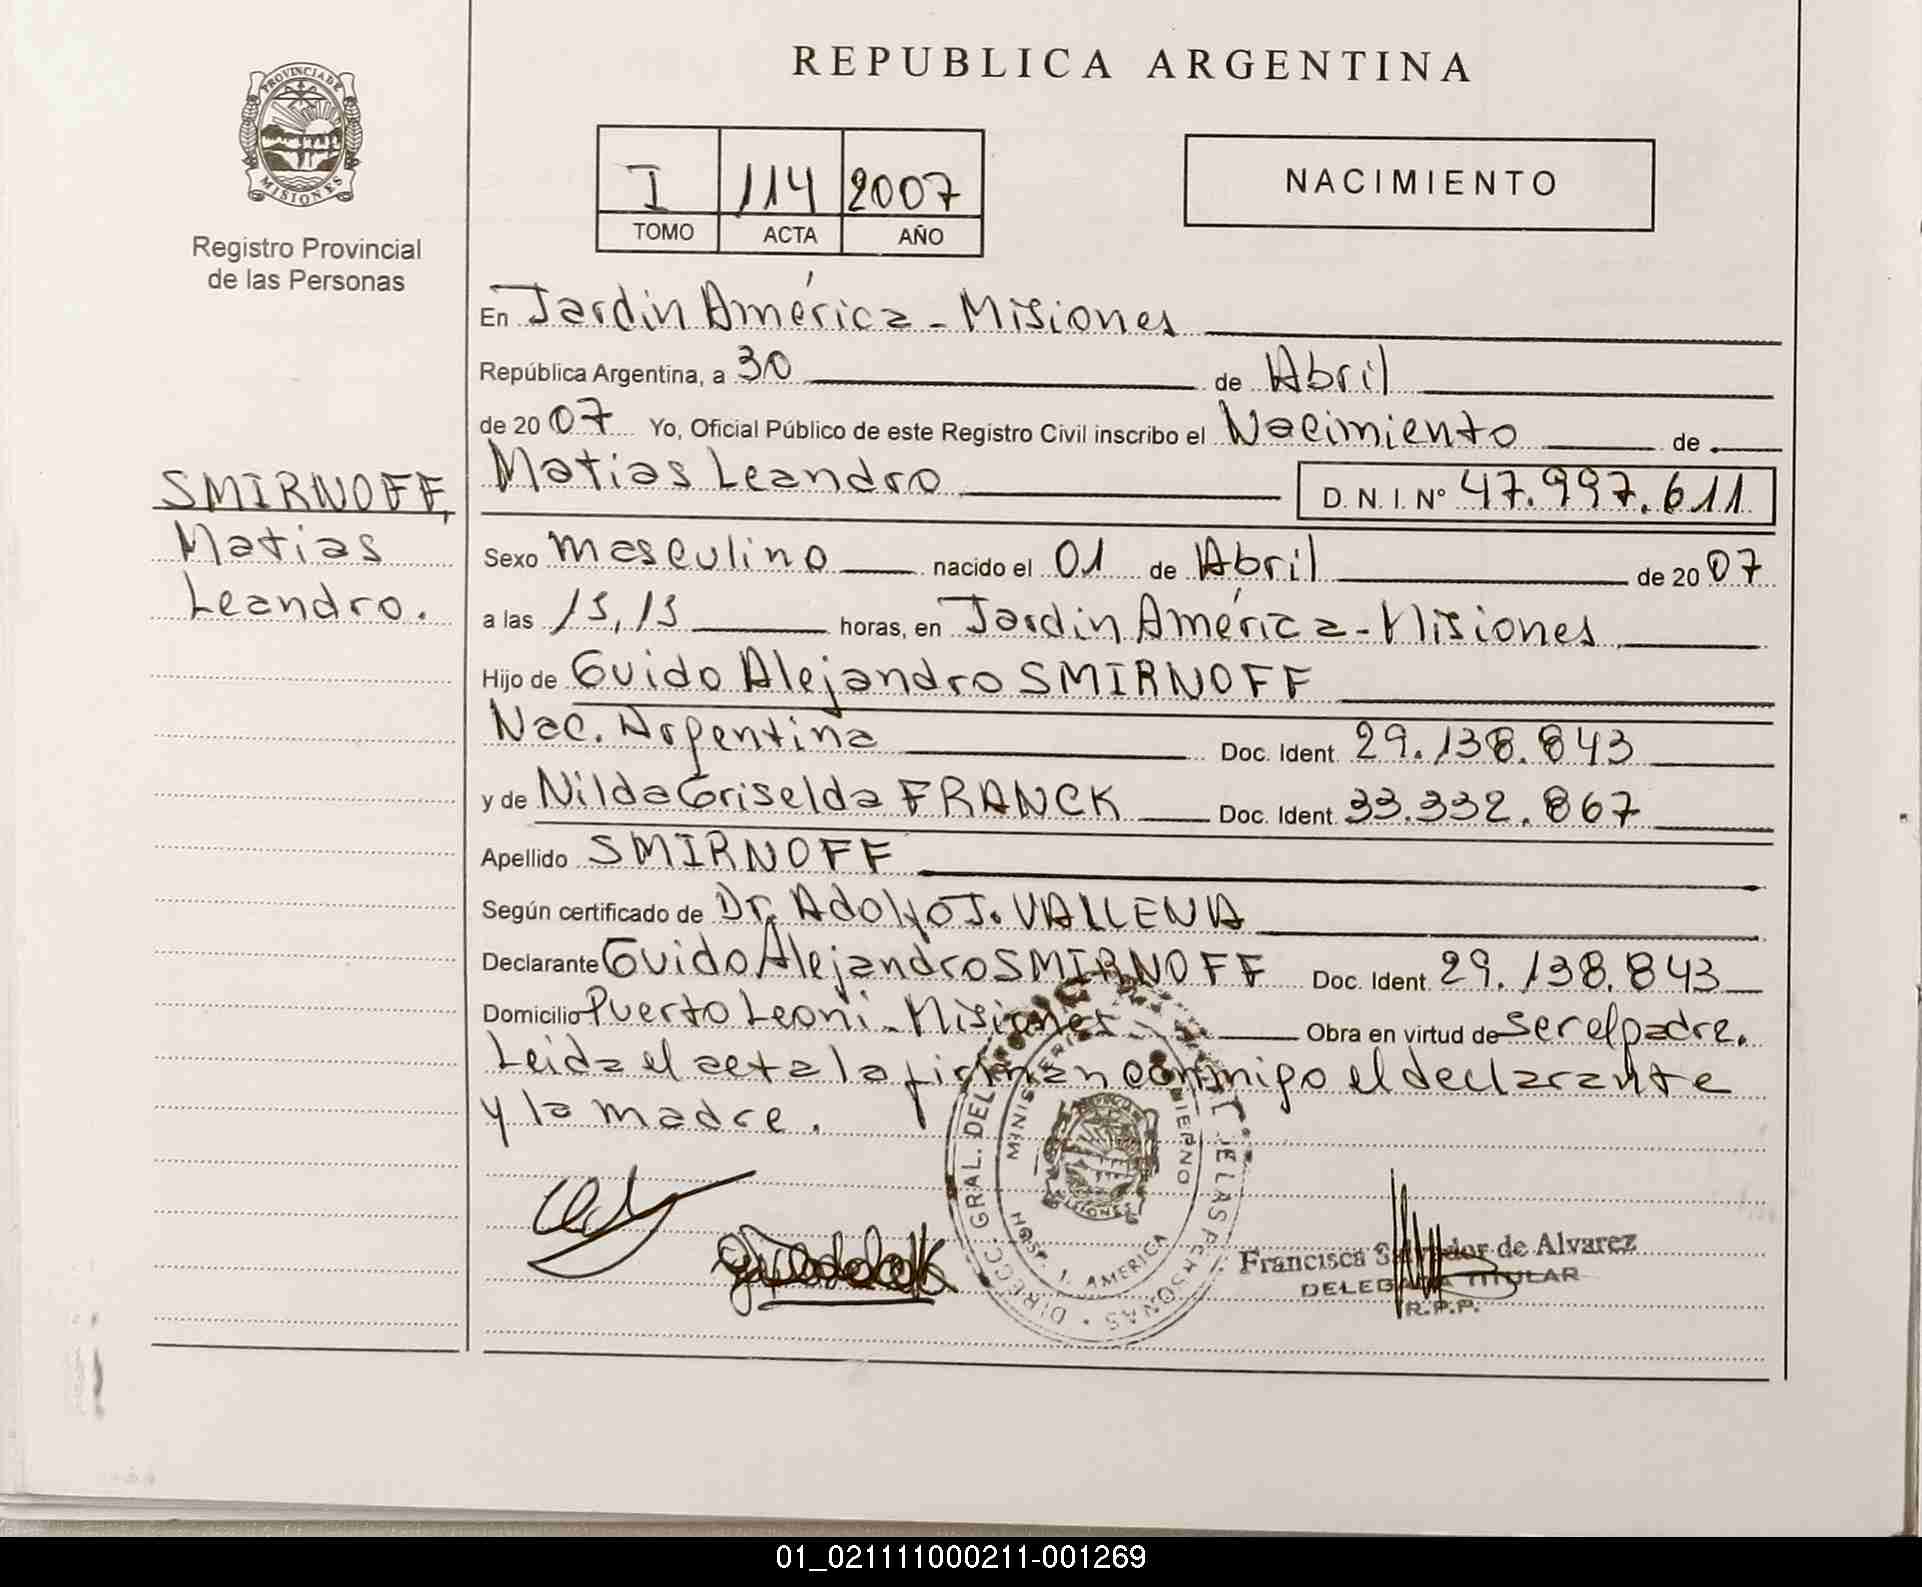 REPUBLICA ARGENTINA
PROVINCIA DE
MISIONES
Registro Provincial
de las Personas
I 114 2007
TOMO ACTA AÑO
NACIMIENTO
En Jardín América - Misiones
República Argentina, a 30 de Abril
de 2007 Yo, Oficial Público de este Registro Civil inscribo el Nacimiento de
SMIRNOFF,
Matias
Leandro.
Matias Leandro D. N. I. Nº 47.997.611
Sexo masculino nacido el 01 de Abril de 2007
a las horas, en Jardín América - Misiones
Hijo de Guido Alejandro SMIRNOFF
Nac. Argentina Doc. Ident. 29.138.843
y de Nilda Griselda FRANCK Doc. Ident. 33.332.867
Apellido SMIRNOFF
Según certificado de Dr. Adolfo J.
Declarante Guido Alejandro SMIRNOFF Doc. Ident. 29.138.843
Domicilio Puerto Leoni - Misiones Obra en virtud de ser el padre.
Leida el acta la firman conmigo el declarante
y la madre.
DIRECC. GRAL. DEL PERSONAS
MINISTERI
J. AMERICA
MISIONES
Francisca Salvador de Alvarez
DELEGADA TITULAR
R.P.P.
01_021111000211-001269